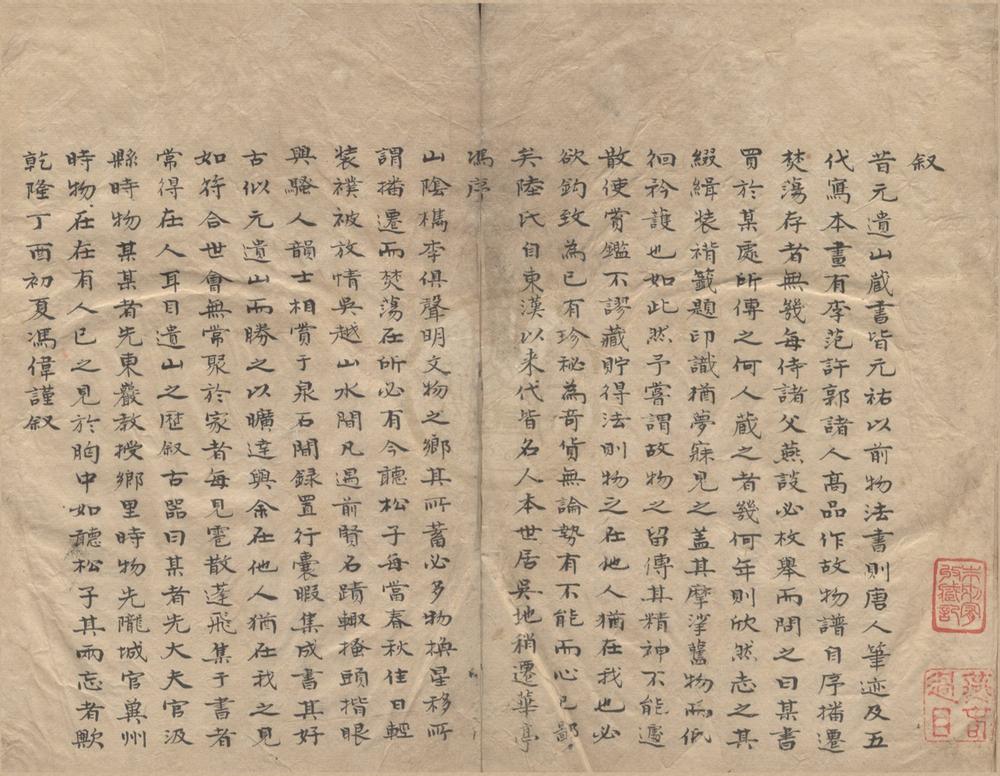 叙
昔元遺山蔵書皆元祐以前物法書則唐人筆迹及五
代寫本畫有李范許郭諸人髙品作故物譜自序播遷
焚蕩存者無幾每侍諸父燕談必枚舉而問之曰某書
買於某處所傳之何人蔵之者幾何年則欣然志之其
綴緝装褙籖題印識猶夢寐見之盖其摩挲舊物而低
徊衿護也如此然予嘗謂故物之留傳其精神不能遽
散使賞鑑不謬藏貯得法則物之在他人猶在我也必
欲鈎致為已有珍秘為竒貨無論勢有不能而心已鄙
矣陸氏自東漢以来代皆名人本世居吳地稍遷華亭
馮序
山陰檇李俱聲明文物之鄉其所蓄必多物換星移所
謂播遷而焚蕩在所必有今聽松子每當春秋佳日輕
装襆被放情吳越山水間凡遇前賢名蹟輙搔頭揩眼
興騷人韻士相賞于泉石間録置行囊暇集成書其好
古似元遺山而勝之以曠達興余在他人猶在我之見
如符合世會無常聚於家者每見雹散蓬飛集于書者
常得在人耳目遺山之歴叙古器曰某者先大夫官汲
縣時物某某者先東巖教授鄉里時物先隴城官冀州
時物在在有人已之見於胸中如聽松子其兩忘者歟
乾隆丁酉初夏馮偉謹叙